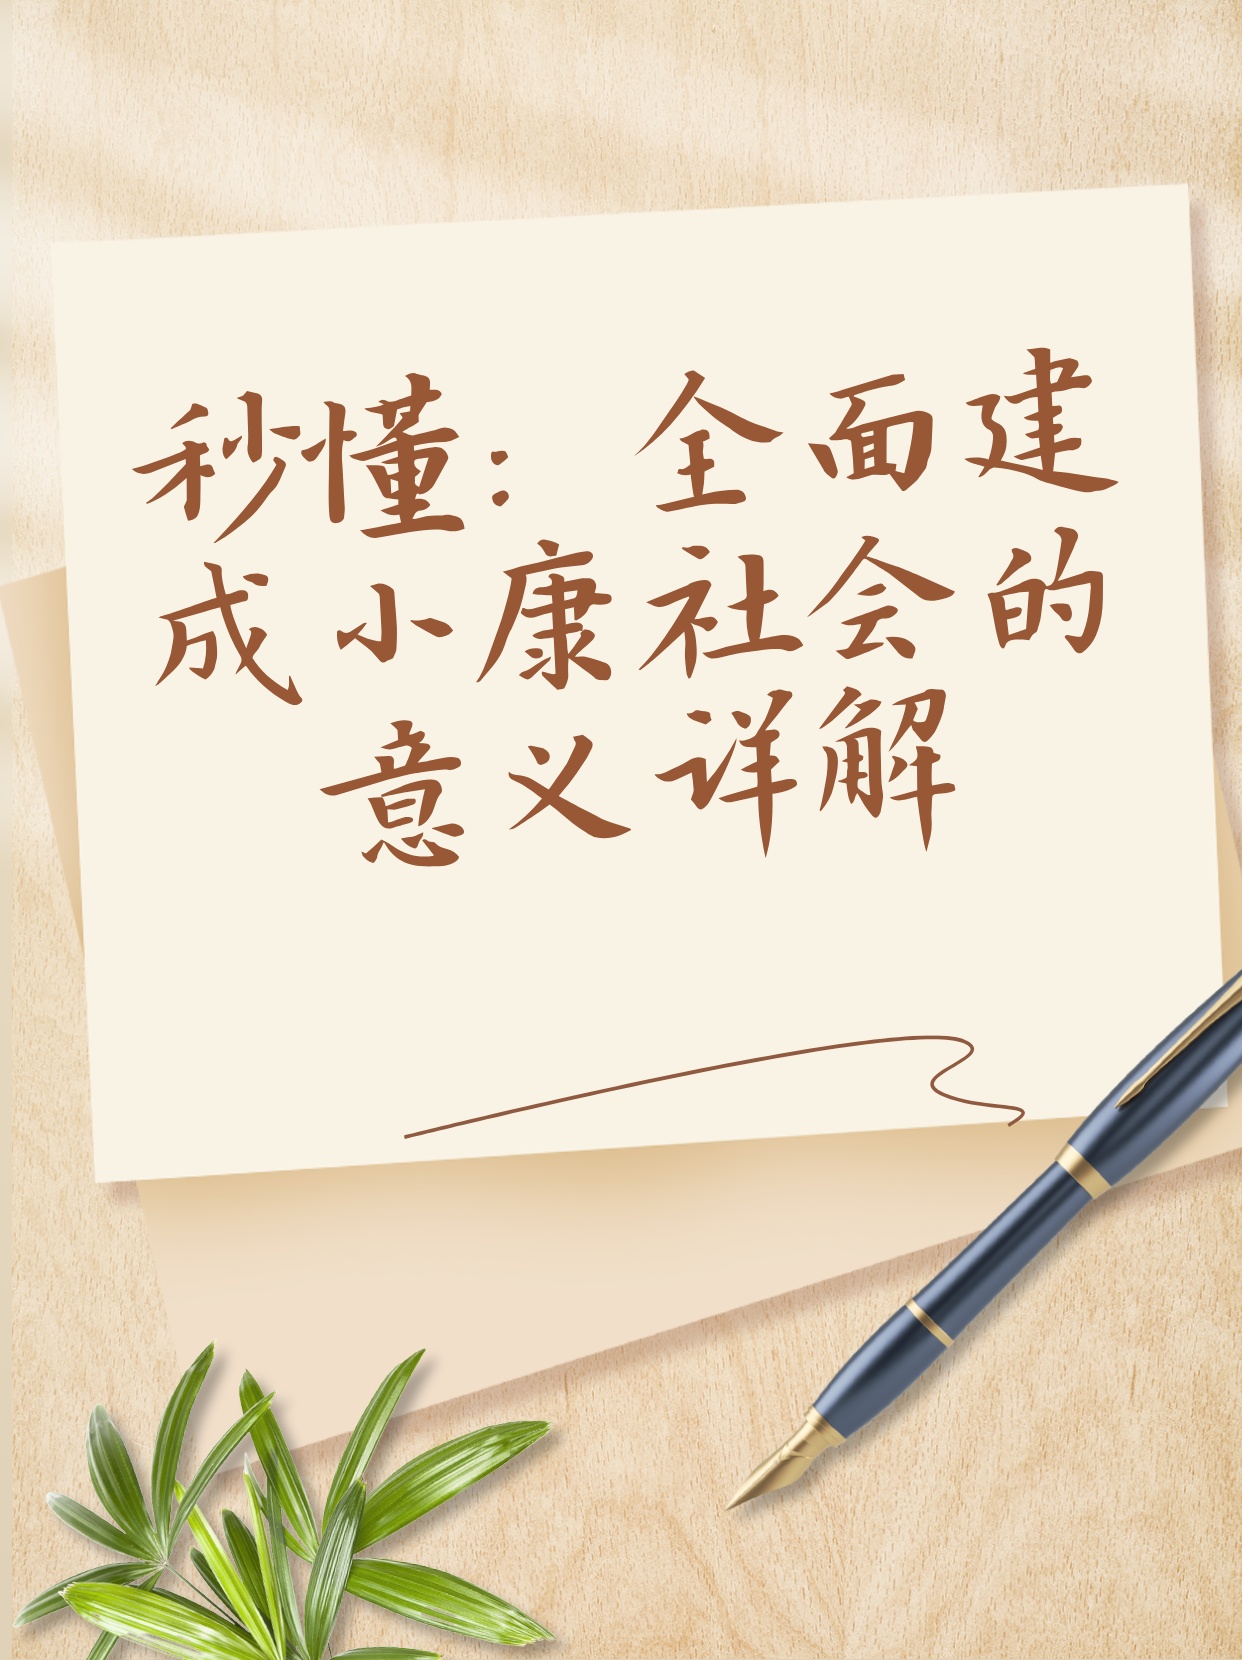 秒懂：全面建
成小康社会的
意义详解